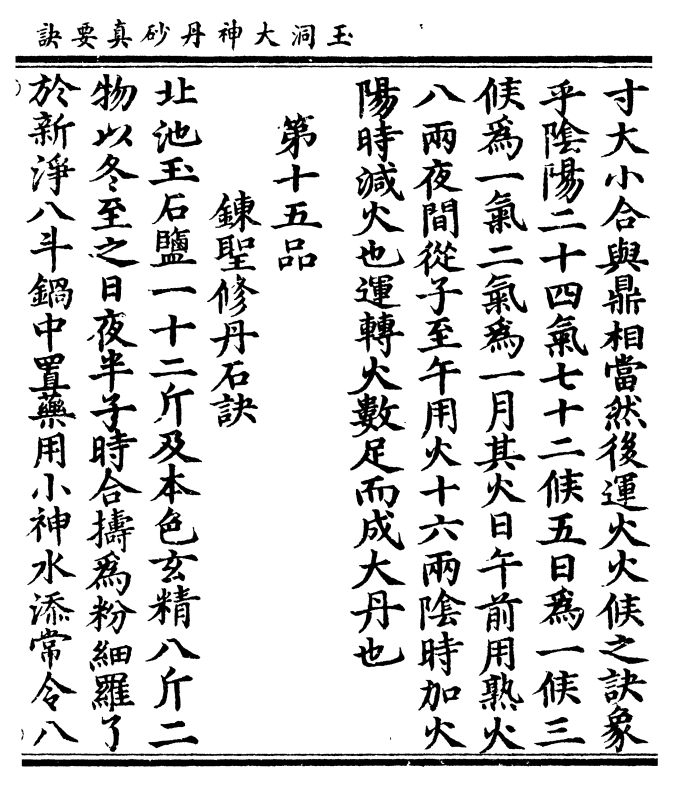 玉洞大神丹砂真要訣
寸大小合與鼎相當然後運火火候之訣象
乎陰陽二十四氣七十二候五日為一候三
候爲一氣二氣爲一月其火日午前用熟火
八兩夜間從子至午用火十六兩陰時加火
陽時減火也運轉火數足而成大丹也
第十五品
鍊聖修丹石訣
北池玉石鹽一十二斤及本色玄精八斤二
物以冬至之日夜半子時合擣爲粉細羅了
於新淨八斗鍋中置藥用小神水添常令八